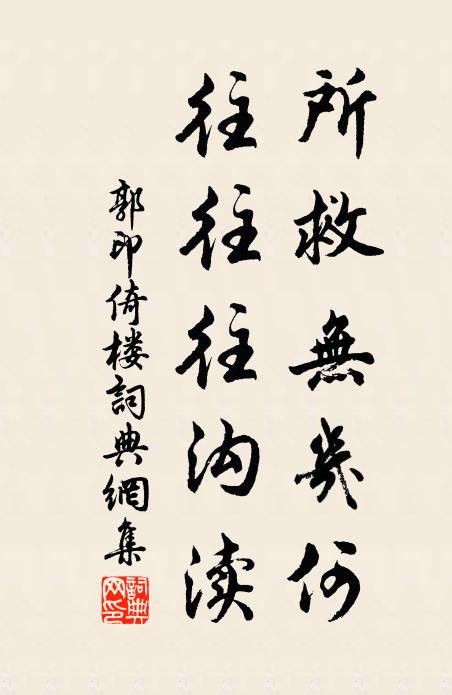 所救無幾何
往往往沟渎
郭印倚楼詞典網集
詞典
网印